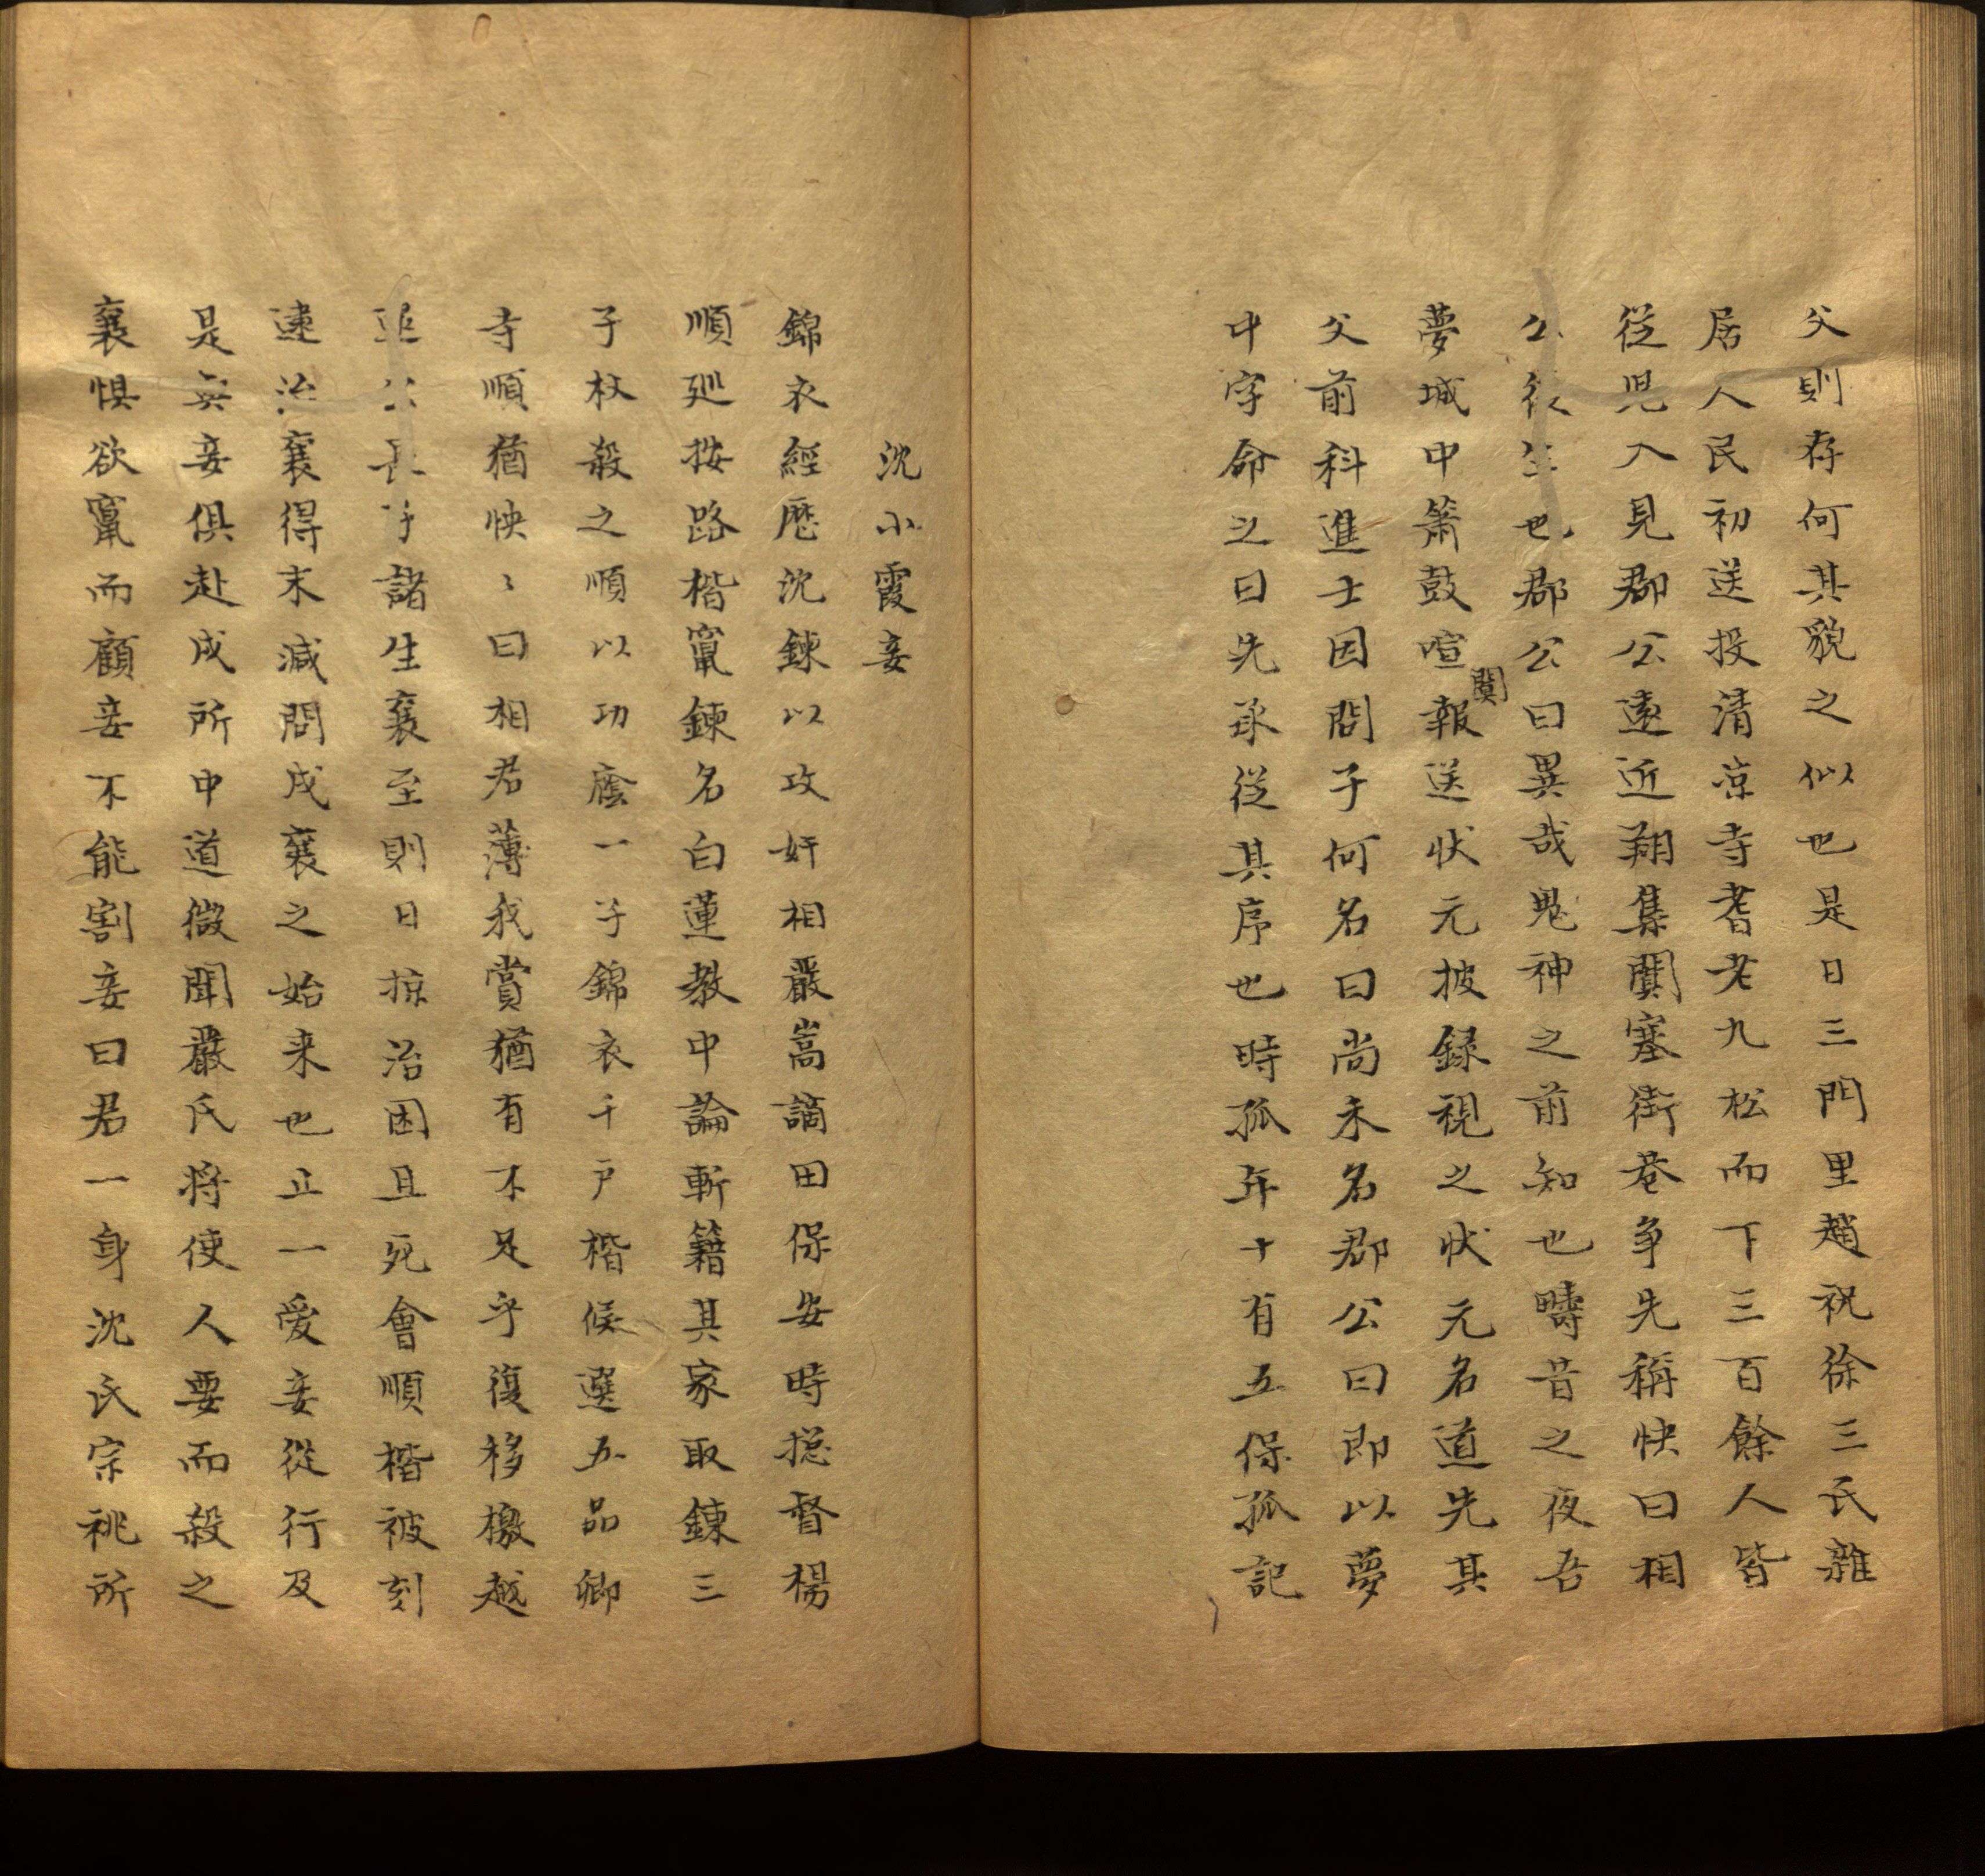 父則存何其貌之似也是日三門里趙祝徐三氏雜
居人民初送投清凉寺耆老九松而下三百餘人皆
從児入見郡公遠近翔集闐塞街巷争先稱快曰相
公後生也郡公曰異哉鬼神之前知也疇昔之夜吾
闐
夢城中簫鼓喧報送状元披録視之状元名道先其
父前科進士因問子何名曰尚未名郡公曰即以夢
中字命之曰先承從其序也時孤年十有五保孤記
沈小霞妾
錦衣經歴沈鍊以攻奸相嚴嵩謫田保安時捴督楊
順廵按路楷竄鍊名白蓮教中論斬籍其家取鍊三
子杖殺之順以功廕一子錦衣千戸楷候選五品卿
寺順猶怏〻曰相君薄我賞猶有不足乎復移檄越
逮公長子諸生襄至則日掠治困且死會順楷被刻
逮治襄得末減問戍襄之始来也止一爱妾從行及
是與妾俱赴戍所中道微聞嚴氏将使人要而殺之
襄惧欲竄而顧妾不能割妾曰君一身沈氏宗祧所